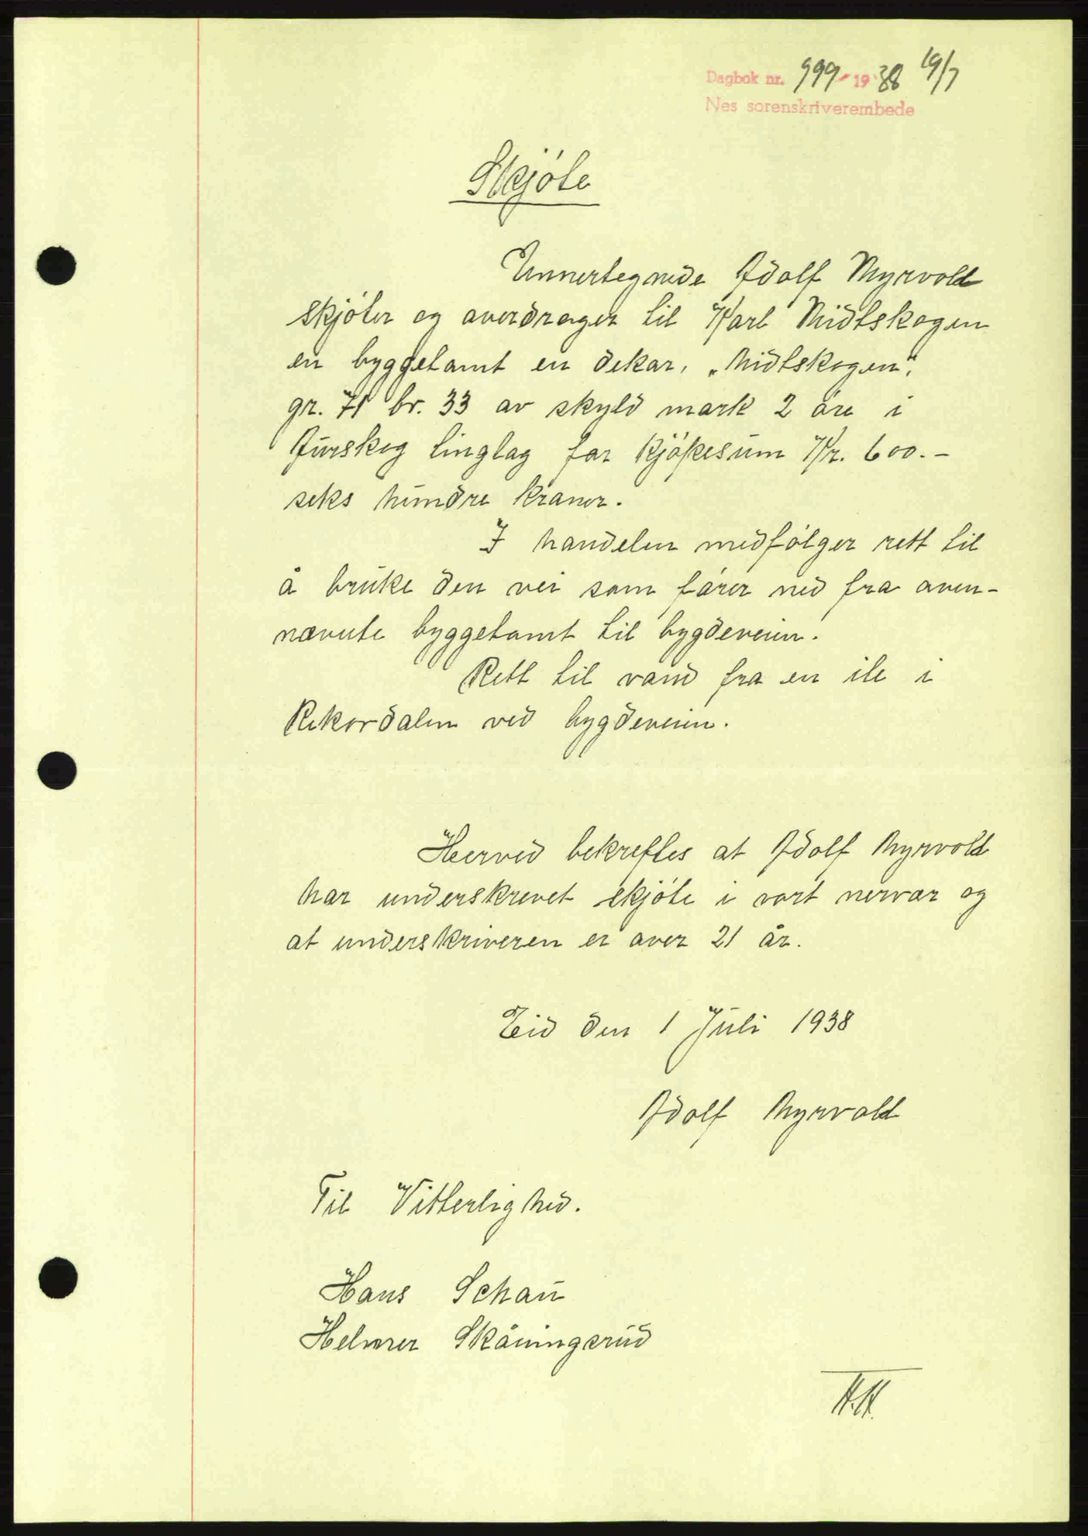 Dagbok nr. 999 - 1938 19/7
Nes sorenskriverembede
Skjöte
Unnertegnede Adolf Myrvold
skjöter og averdrager til Karl Midtskogen
en byggetamt en dekar, „Midtskogen",
gr. 71 br. 33 av skyld mark 2 öre i
Aurskog tinglag for kjöpesum Kr. 600.-
seks hundre kroner.
I handelen medfölger rett til
å bruke den vei som förer ned fra oven-
nævnte byggetomt til bygdeveien.
Rett til vand fra en ile i
Rekordalen ved bygdeveien.
Herved bekreftes at Adolf Myrvold
har underskrevet skjöte i vort nervær og
at underskriveren er over 21 år.
Eid den 1 Juli 1938
Adolf Myrvold
Til Vitterlighed.
Hans Schau
Helmer Skåningsrud
H.H.